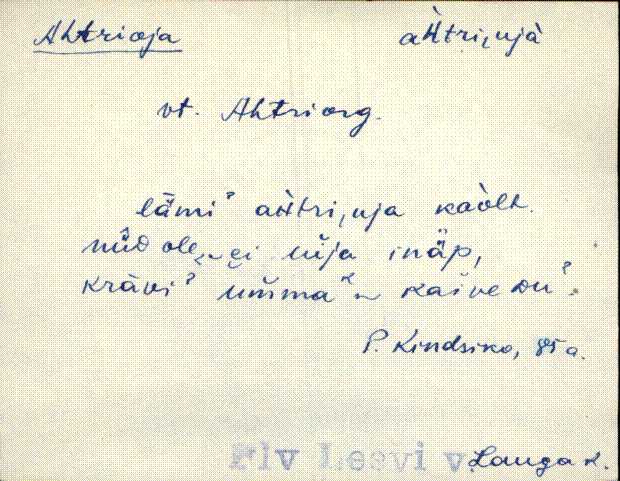 Ahtrioja aHtri,ujà
vt. Ahtriorg.
lämiˀ aHtri,uja kaòlt.
nüD ole ei üja inäp,
kräviˀ ummaˀ kaiveDuˀ.
P. Kindsiko, 85 a.
Plv Leevi v. Lauga k.